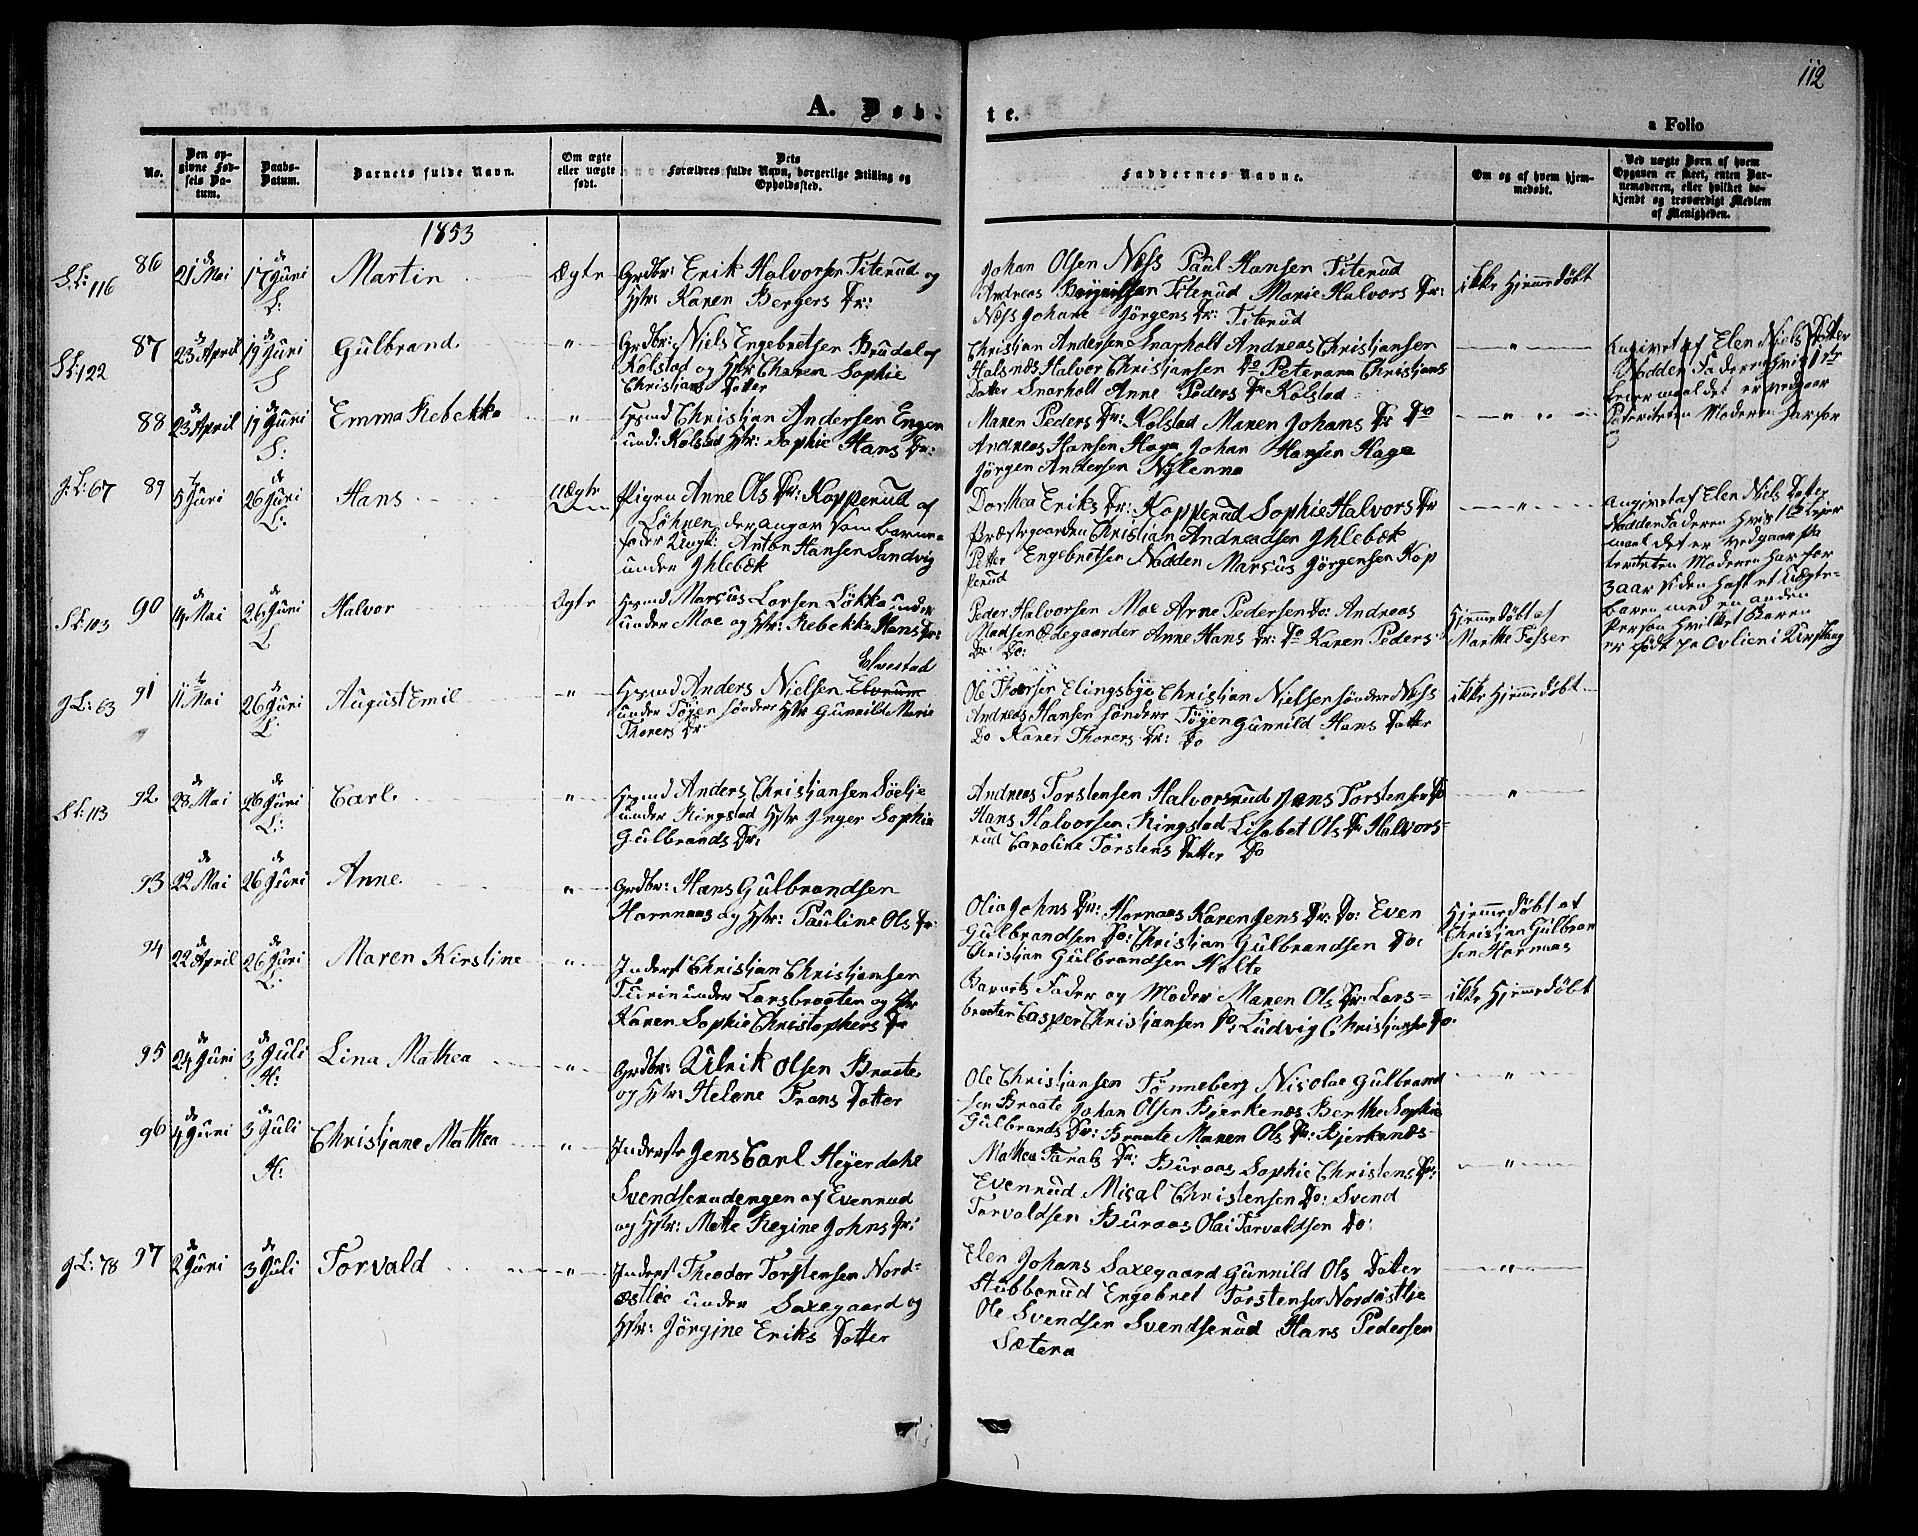 112
A. Døbte.
a Folio
No.
Den opgivne Fødsels Datum.
Daabs-Datum.
Barnets fulde Navn.
Om ægte eller uægte født.
Dets Forældres fulde Navn, borgerlige Stilling og Opholdssted.
Faddernes Navne.
Om og af hvem hjemmedøbt.
Ved uægte Børn af hvem Opgaven er skeet, enten Barnemoderen, eller hvilket bekjendt og troværdigt Medlem af Menigheden.
1853
S.L: 116
86
21 de Mai
17 de Juni
L:
Martin
Ægte
Grdbr: Erik Halvorsen Titerud og
Hstr: Karen Bergers Dr:
Johan Olsen Næss Paul Hansen Titerud
Andreas Titerud Marie Halvors Dr:
Næss Johane Jörgens Dr: Titerud
ikke hjemmedøbt
S.L: 122
87
23 de April
19 de Juni
S
Gulbrand
"
Grdbr: Niels Engebretsen Brudal af
Kolstad og Hstr Charen Sophie
Christians Datter
Christian Andersen Snarholt Andreas Christjansen
Halsnes Halvor Christjansen Do Peterana Christjans
Datter Snarholt Anne Peders Dr Kolstad
"
Angivet af Elen Niels Datter
Nodden Faderen hvis 1ste
Leiermaal det er vedgaar
Pateriteten Moderen har for
88
23 de April
19 de Juni
S:
Emma Rebekka
"
Hsmd Christjan Andersen Engen
und: Kolstad Hstr: Sophie Hans Dr:
Maren Peders Dr: Kolstad Maren Johans Dr Do
Andreas Hansen Haga Johan Hansen Haga
Jörgen Andersen Nylenna
"
g.L: 67
89
5 Juni
26 de Juni
L:
Hans
Uægte
Pigen Anne Ols Dr: Kopperud af
Löhren, der angav som Barne
fader Ungk: Anton Hansen Sandvig
under Ihlebæk
Dorthea Eriks Dr: Kopperud Sophie Halvors Dr
Præstegaarden Christian Andreadsen Ihlebæk
Petter Engebretsen Nodden Marcus Jörgensen Kop
perud
"
Angivet af Elen Niels Datter
Nodden Faderen hvis 1ste Leier
maal det er vedgaar Pa
teriteten Moderen har for
3 aar siden haft et Uægte-
barn med en anden
Person hvilket Barn
er födt
S.L: 103
90
14 Mai
26 de Juni
L
Halvor
Ægte
Hsmd Marcus Larsen Lökka under
under Moe og Hstr: Rebekka Hans Dr:
Peder Halvorsen Moe Arne Pedersen Do: Andreas
Madsen Ödegaarder Anne Hans Dr: Do Karen Peders
Dr: Do:
Hjemmedøbt af
Marthe Fosser
g.L: 63
91
11 Mai
26 de Juni
L:
August Emil
"
Elvestad
Hsmd Anders Nielsen Elvrum
under Töyen söndre Hstr Gunnild Marie
Thorers Dr
Ole Elingsbye Christjan Nielsen söndre Næss
Andreas Hansen söndre Töyen Gunnild Hans Datter
Do Karen Thorers Dr: Do
ikke hjemmedøbt
S.L: 113
92
28 de Mai
26 de Juni
L:
Carl
"
Hsmd Anders Christjansen Söelje
under Ringstad Hstr Inger Sophie
Gulbrands Dr:
Andreas Torstensen Halvorsrud Jens Torstensen Do
Hans Halvorsen Ringstad Lisabet Ols Dr Halvors-
rud Caroline Torstens Datter Do
"
93
22 de Mai
26 de Juni
Anne
"
Grdbr: Hans Gulbrandsen
Harnnaas og Hstr: Pauline Ols Dr:
Olia Johns Dr: Harnaas Karen Jens Dr: Do: Even
Gulbrandsen Do: Christjan Gulbrandsen Do:
Christjan Gulbrandsen Holte
Hjemmedøbt af
Christjan Gulbran
sen Harnaas
94
22 de April
26 de Juni
L:
Maren Kirstine
"
Inderst Christjan Christjansen
under Larsbraaten og Hstr
Karen Sophie Christophers Dr
Barnets Fader og Moder Maren Ols Dr: Lars-
braaten Casper Christjansen Do: Ludvig Christjansen Do.
ikke hjemmedøbt
95
24 de Juni
3 de Juli
H:
Lina Mathea
"
Grdbr: Ulrik Olsen Braate
og Hstr: Helene Frans Datter
Ole Christjansen Tönneberg Nicolae Gulbrand
sen Braate Johan Olsen Bjerkenæs Berthe Sophie
Gulbrands Dr: Braate Maren Ols Dr: Bjerkenæs
"
96
4 de Juni
3 de Juli
H:
Christjane Mathea
"
Inderste Jens Carl Heyerdahl
Svendserudengen af Evenrud
og Hstr: Mette Regine Johns Dr:
Mathea Taralds Dr: Buraas Sophie Christens Dr:
Evenrud Misal Christensen Do: Svend
Torvaldsen Buraas Olai Torvaldsen Do:
"
g.L: 78
97
2 de Juni
3 de Juli
Torvald
"
Inderst Theodor Torstensen Nord-
æstlie under Saxegaard og
Hstr: Jörgine Eriks Datter
Elen Johans Saxegaard Gunnild Ols Datter
Stubberud Engebret Torstensen Nordæstlie
Ole Svendsen Svendserud Hans Pedersen
Sætera
"